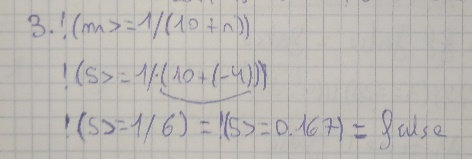 3. !(m>=1/(10+n))
!(5>=1/(10+(-4)))
!(5>=1/6) = !(5>=0.167) = false